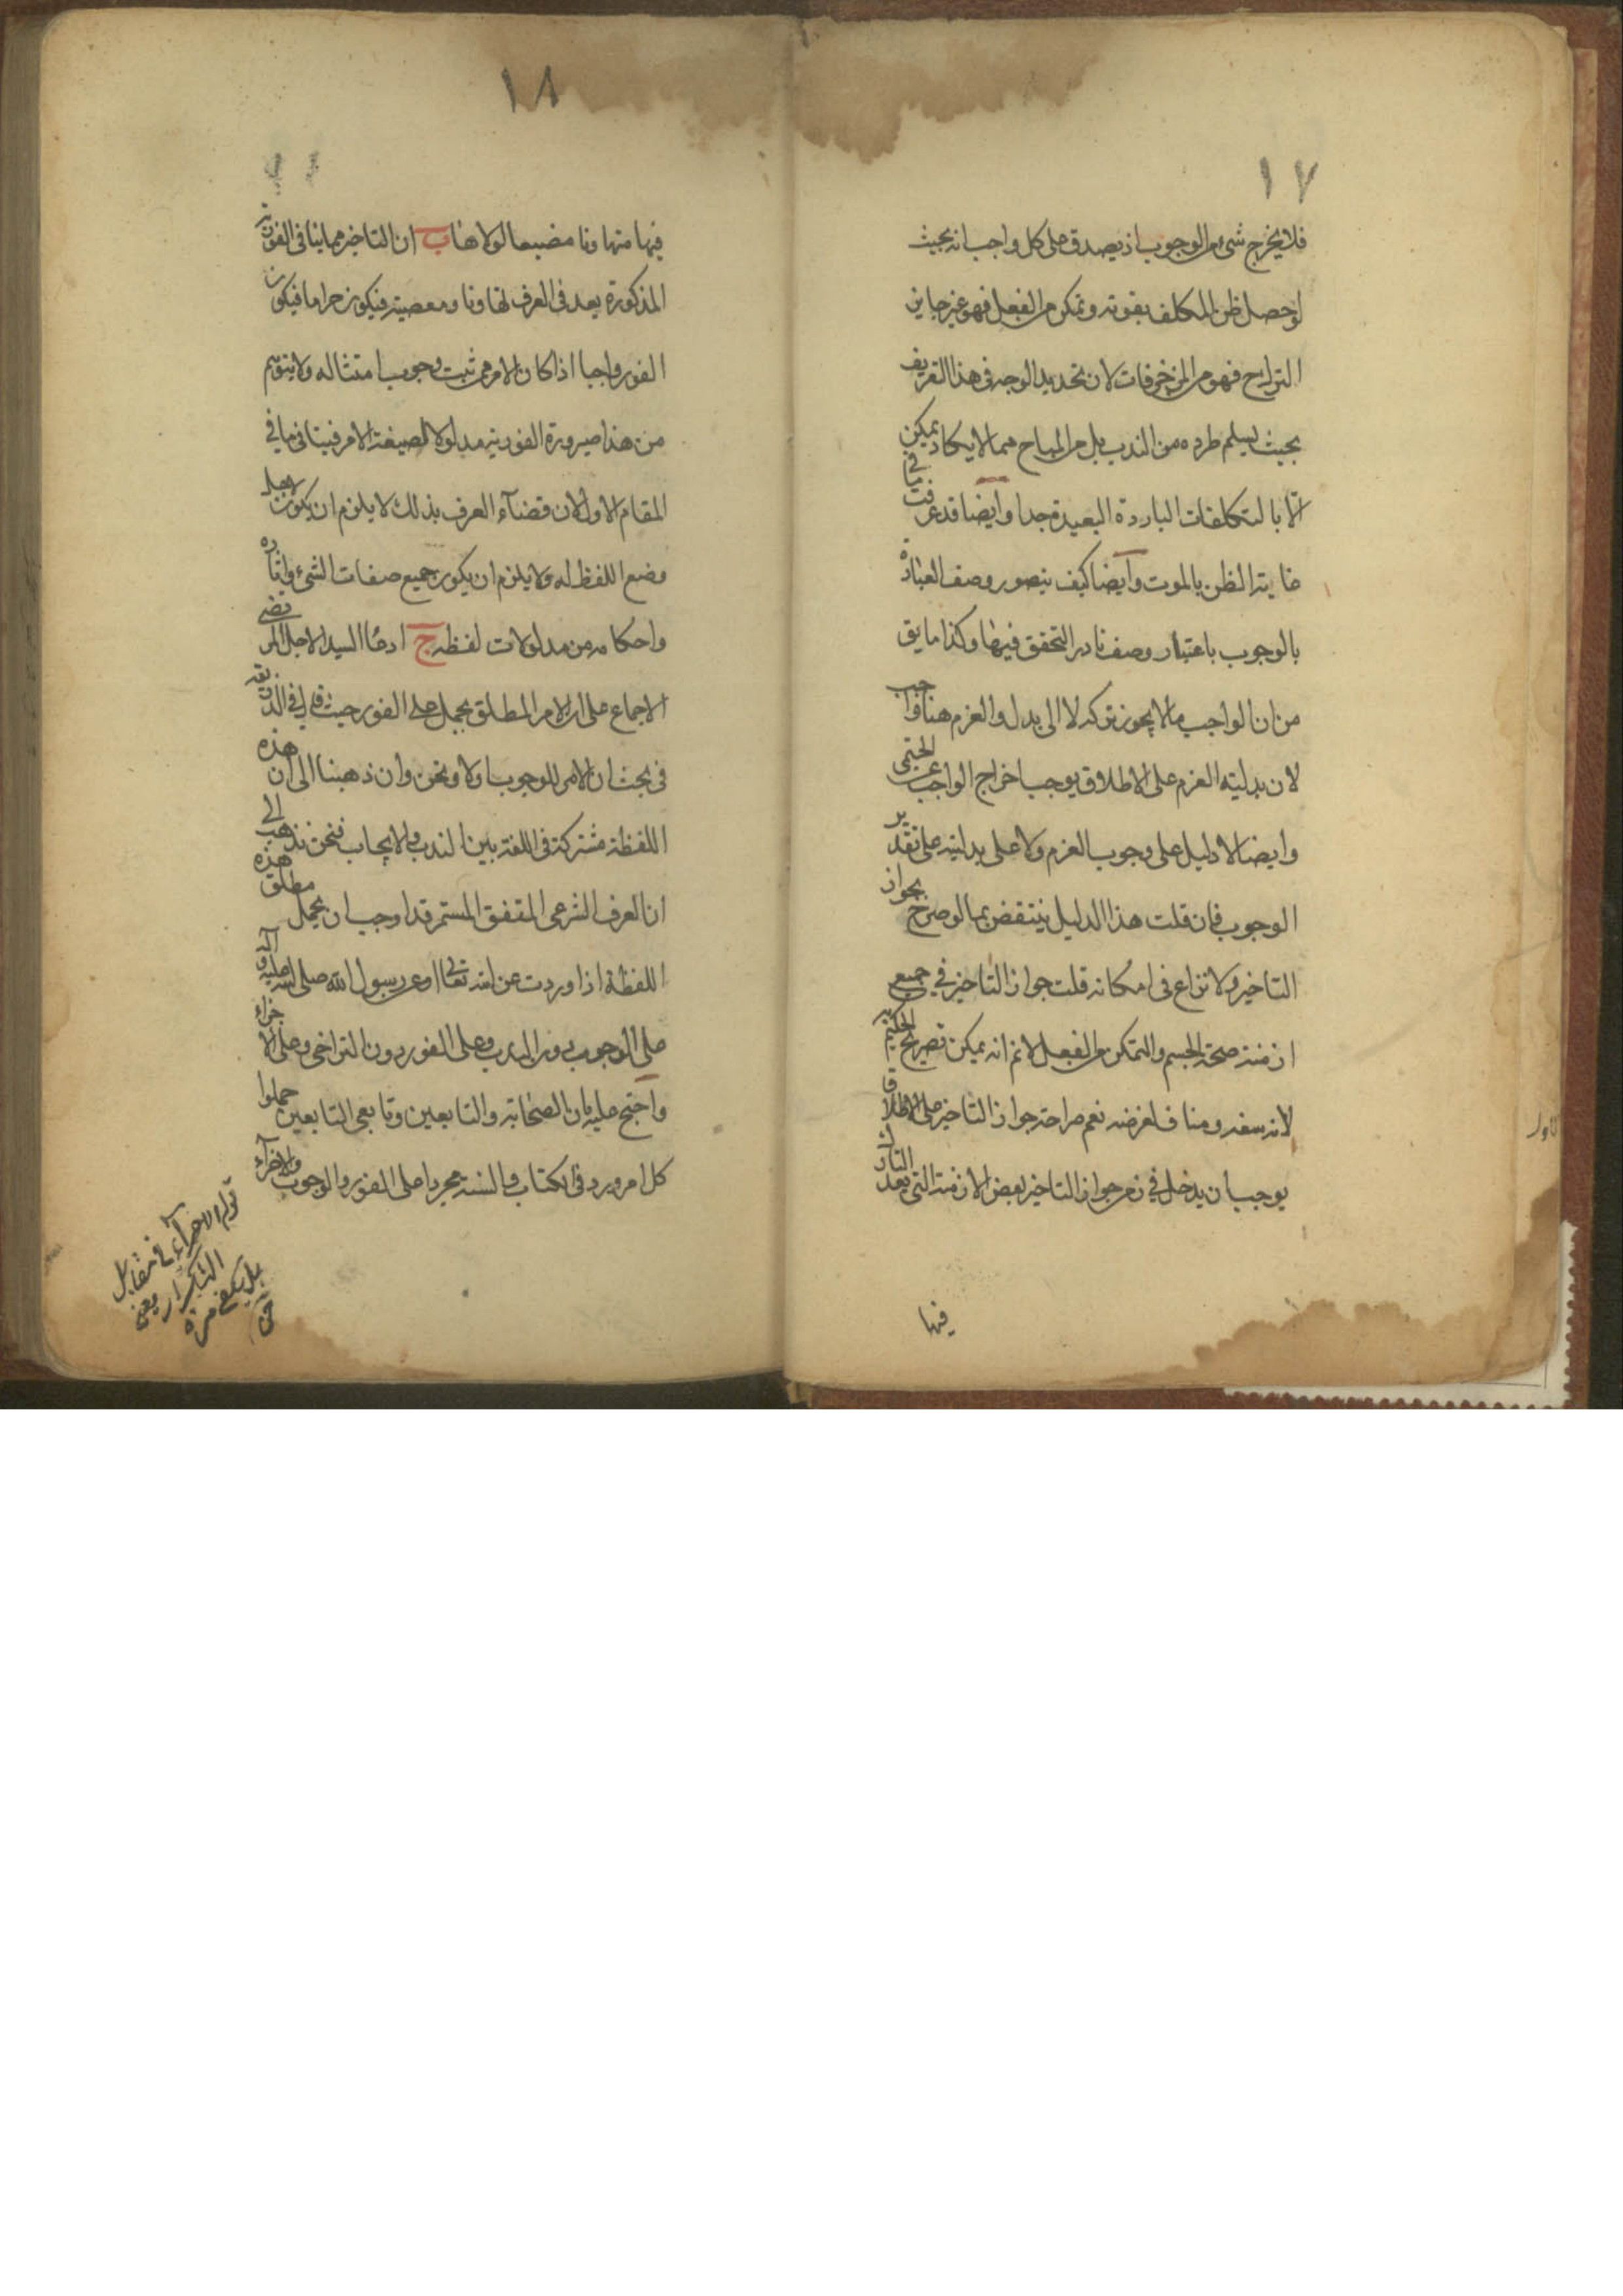 ١٧
فلا يخرج شيء من الوجوب اذ يصدق على كل واجب انه بحيث
لو حصل ظن المكلف بفوته وتمكن من الفعل فهو غير جايز
التراخ فهو من المزخرفات لان تحديد الوجه في هذا التعريف
بحيث يسلم طرده من الندب بل من المباح مما لا يكاد يمكن
الا بالتكلفات الباردة البعيدة جدا وايضا قد عرفت ما في
غاية الظن بالموت وايضا كيف يتصور وصف العبادة
بالوجوب باعتبار وصف نادر التحقق فيها وكذا ما يق
من ان الواجب ما لا يجوز تركه لا الى بدل والعزم هنا واجب
لان بدلية العزم على الاطلاق يوجب اخراج الواجب عن الحتمى
وايضا لا دليل على وجوب العزم ولا على بدليته على تقدير
الوجوب فان قلت هذا الدليل ينتقض بما لو صرح بجواز
التاخير ولا نزاع في امكانه قلت جواز التاخير في جميع
ازمنة صحة الجسم والتمكن من الفعل لا نم انه يمكن تصريح الحكيم به
لانه سفه ومناف لغرضه نعم صراحة جواز التاخير على الاطلاق
يوجب ان يدخل في زمن جواز التاخير بعض الازمنة التي يعد التارك
فيها
١٨
فيها متهاونا مضيعا لولاها ب ان التاخير مما ينافي الفورية
المذكورة يعد في العرف تهاونا ومعصية فيكون حراما فيكون
الفور واجبا اذا كان الامر مم ثبت وجوب امتثاله ولا يتوهم
من هذا صيرورة الفورية مدلولا لصيغة الامر فينافي ما في
المقام الاول لان قضاء العرف بذلك لا يلزم ان يكون لاجل
وضع اللفظ له ولا يلزم ان يكون جميع صفات الشيء واثاره
واحكامه من مدلولات لفظه ج ادعا السيد الاجل المرتضى
الاجماع على ان الامر المطلق يحمل على الفور حيث قال في الذريعة
في بحث ان الامر للوجوب اولا ونحن وان ذهبنا الى ان هذه
اللفظة مشتركة في اللغة بين الندب والايجاب فنحن نذهب الى
ان العرف الشرعي المتفق المستمر قد اوجب ان يحمل مطلق هذه
اللفظة اذا وردت عن الله تعالى او عن رسول الله صلى الله عليه واله
على الوجوب دون الندب وعلى الفور دون التراخي وعلى الاجزاء
واحتج عليه بان الصحابة والتابعين وتابعي التابعين حملوا
كل امر ورد في الكتاب والسنة مجردا على الفور والوجوب والاجزاء
قوله والاجزاء في مقابل
التكرار يعني
بل يكفي مرة